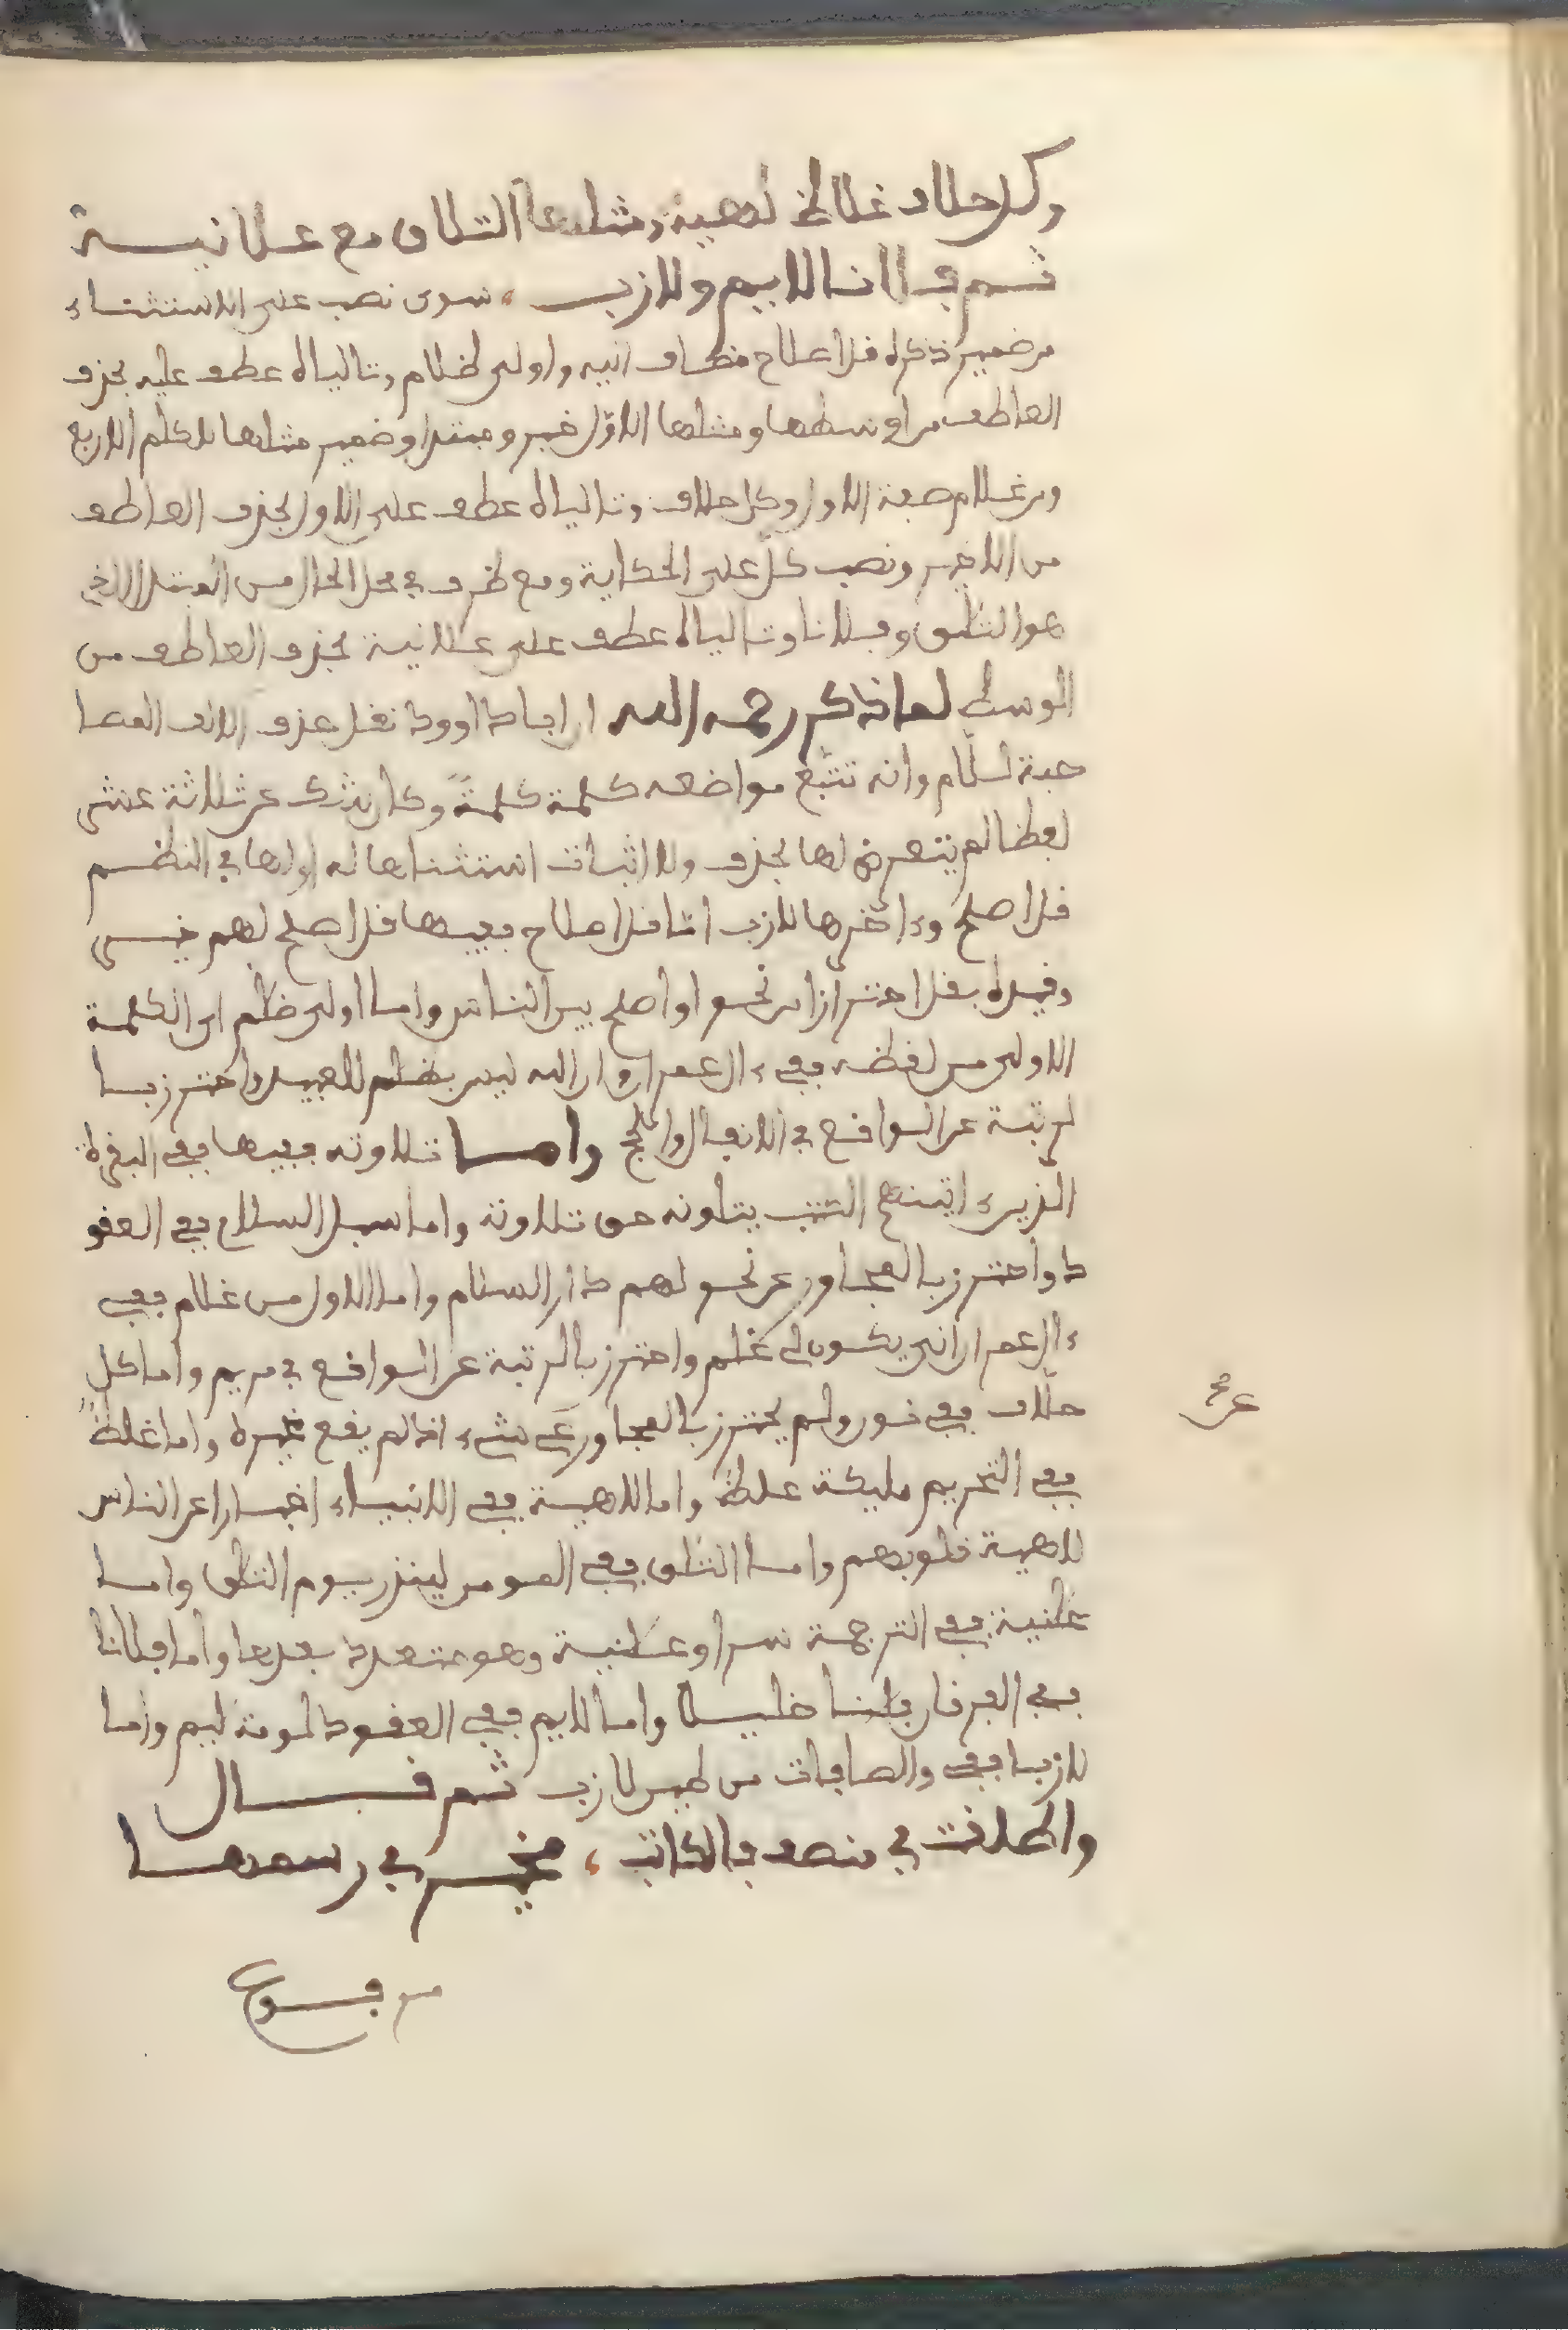 وكل حلاف غلاظ لاهية ومثلها التلاق مع علانية
ثم فلانا لايم ولازب ، سوى نصب على الاستثناء
من ضمير ذكره قل اصلاح مضاف اليه واولى ظلام وتالياه عطف عليه بحذف
العاطف من اوسطها ومثلها الاول خبر ومبتدا وضمير مثلها للكلم الاربع
ومن غلام صفة الاول وكل حلاف وتالياه عطف على الاول بحذف العاطف
من الاخير ونصب كل على الحكاية ومع ظرف في محل الحال من المبتدا الذي
هو التلق وفلانا وتالياه عطف على علانية بحذف العاطف من
الوسطى لما ذكر رحمه الله ان ابا داوود نقل حذف الالف المصا
حبة للام وانه تتبع مواضعه كلمة كلمة وكان سكت عن ثلاثة عشر
لفظا لم يتعرض لها بحذف ولا اثبات استثناها له اولها في النظم
قل اصلح وءاخرها لازب اما قل اصلاح ففيها قل اصلح لهم خير
وقيده بقل احترازا من نحو او اصلح بين الناس واما اولى ظلم اى الكلمة
الاولى من لفظه ففي ءال عمران وان الله ليس بظلم للعبيد واحترز با
لرتبة عن الواقع في الانفال والحج واما تلاوته ففيها ففي البقرة
الذين ءاتينهم الكتب يتلونه حق تلاوته واما سبل السلام ففي العقو
د واحترز بالمجاور عن نحو لهم دار السلام واما الاول من غلام ففي
ءال عمران انى يكون لى غلم واحترز بالرتبة عن الواقع في مريم واما كل
حلاف ففي نون ولم يحترز بالمجاور عن شيء اذ لم يقع غيره واما غلظ
ففي التحريم مليكة غلظ واما لاهية ففي الانبياء اخبارا عن الناس
لاهية قلوبهم واما التلق ففي المومن لينذر يوم التلق واما
علنية ففي الترجمة سرا وعلنية وهو متعدد بعدها واما فلانا
ففي الفرقان فلنا خليلا واما لايم ففي العقود لومة لايم واما
لازب ففي والصافات من طين لازب ثم قال
واطلقت في منصف فالكاتب ، مخير في رسمها
من فوع
عن صح